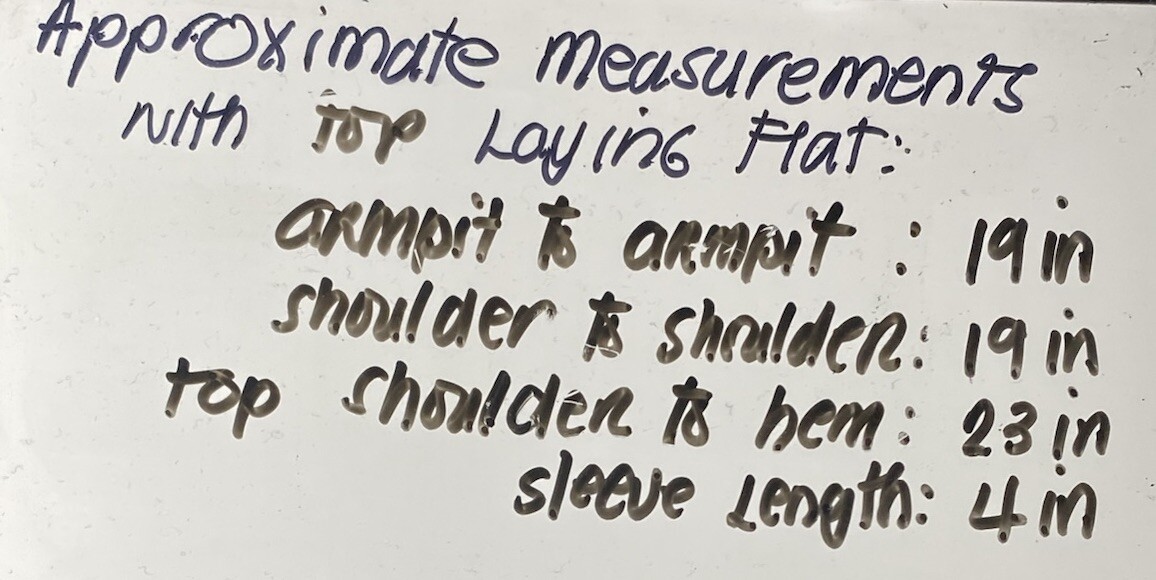 Approximate measurements
with top Laying Flat:
armpit to armpit : 19 in
shoulder to shoulder: 19 in
top shoulder to hem: 23 in
sleeve Length: 4 in